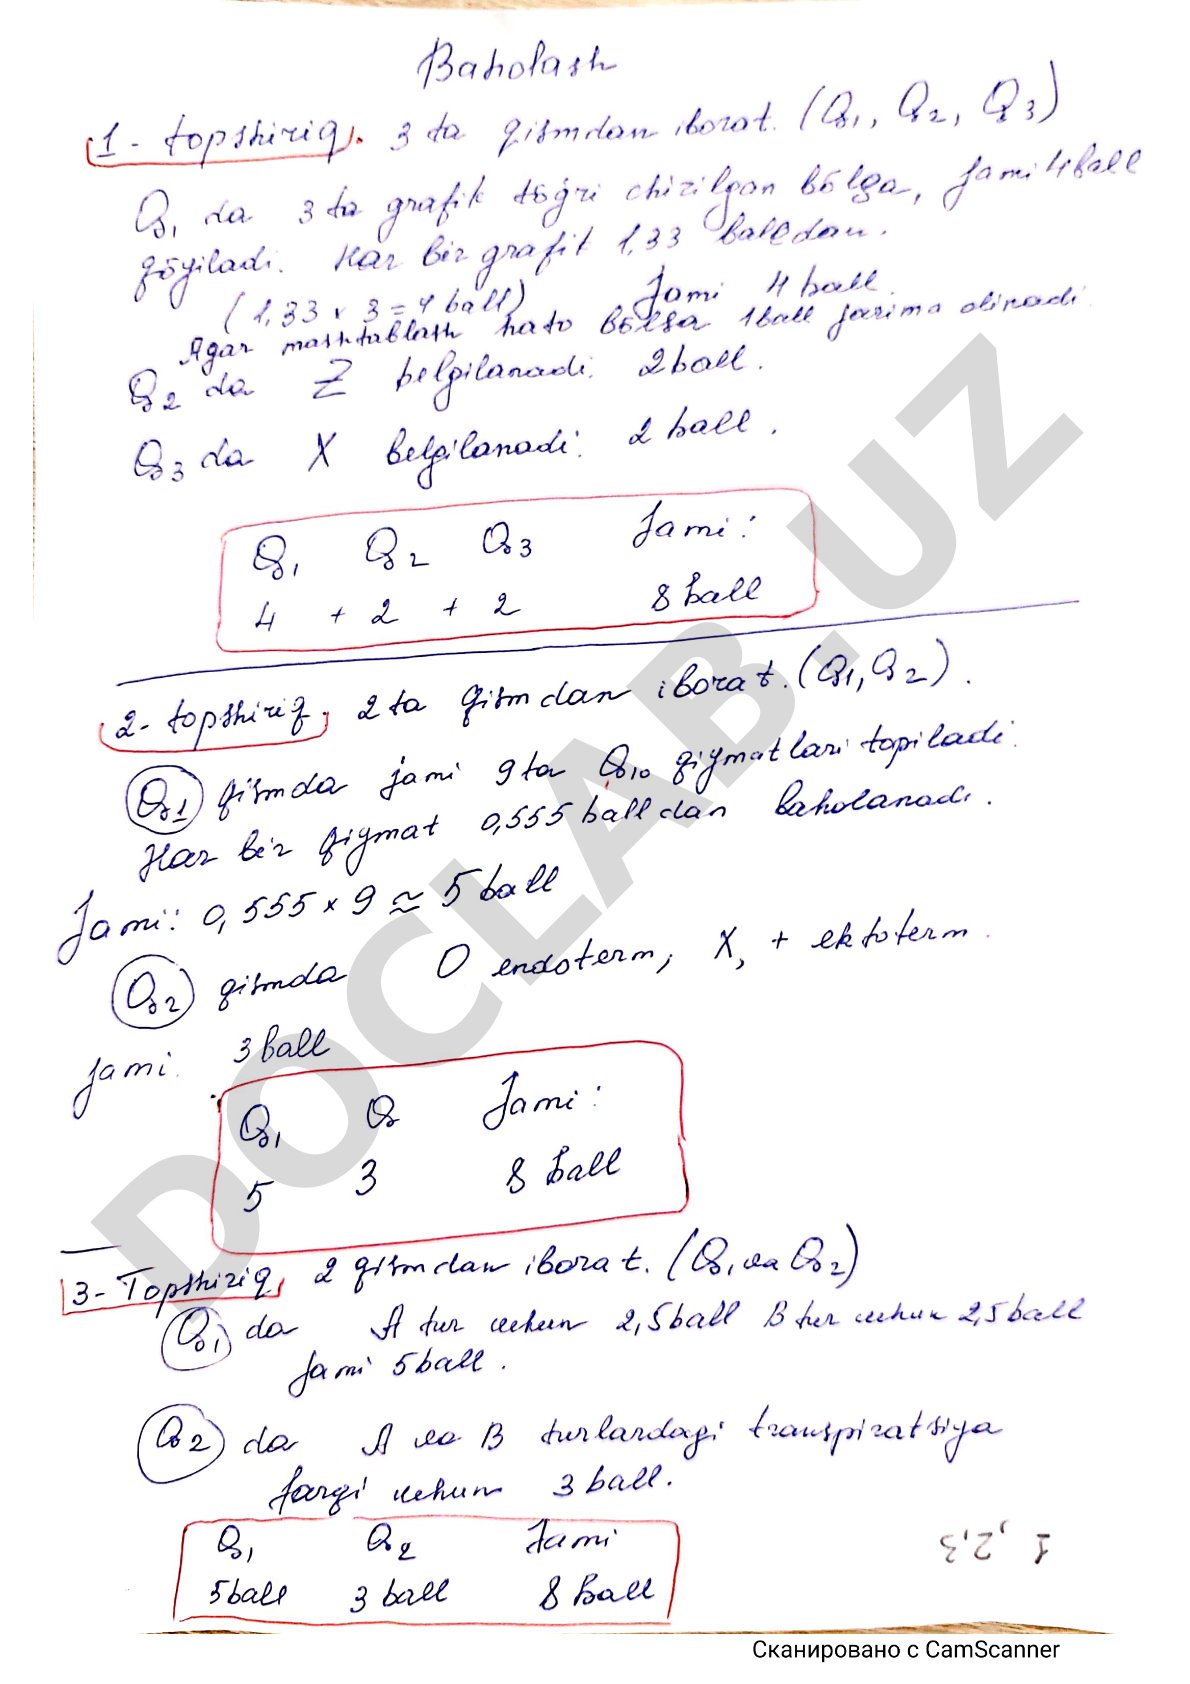 Baholash
1- topshiriq. 3 ta qismdan iborat. (Q1, Q2, Q3)
Q1 da 3 ta grafik tõgri chizilgan bõlsa, jami 4 ball
qõyiladi. Har bir grafik 1,33 balldan.
(1,33 x 3 = 4 ball) Jami 4 ball.
Agar mashtablash hato bõlsa 1 ball jarima olinadi.
Q2 da Z belgilanadi. 2 ball.
Q3 da X belgilanadi. 2 ball.
Q1 Q2 Q3 Jami:
4 + 2 + 2 8 ball
2- topshiriq, 2 ta qismdan iborat. (Q1, Q2).
Q1 qismda jami 9 ta Q10 qiymatlari topiladi.
Har bir qiymat 0,555 balldan baholanadi.
Jami: 0,555 x 9 ≈ 5 ball
Q2 qismda O endoterm, X, + ektoterm.
jami. 3 ball
Q1 Q Jami:
5 3 8 ball
3- Topshiriq, 2 qismdan iborat. (Q1 va Q2)
Q1 da A tur uchun 2,5 ball B tur uchun 2,5 ball
jami 5 ball.
Q2 da A va B turlardagi transpiratsiya
farqi uchun 3 ball.
Q1 Q2 Jami
5 ball 3 ball 8 Ball
1, 2, 3
DOCLAB.UZ
Сканировано с CamScanner